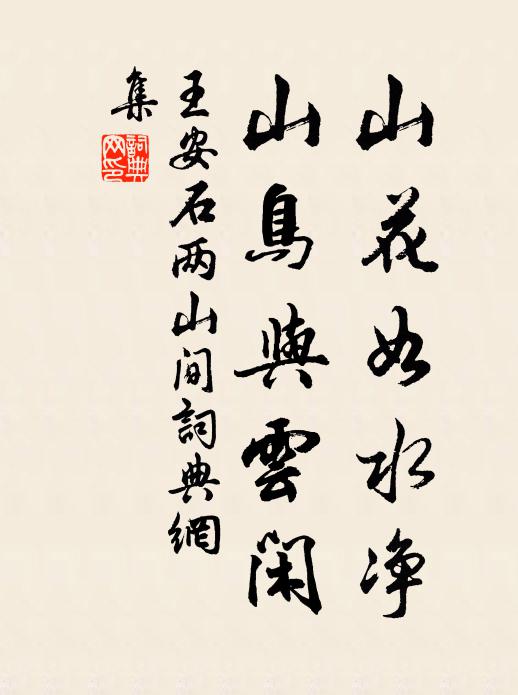 山花如水净
山鳥與雲閑
王安石两山间詞典網
集
詞典
网印